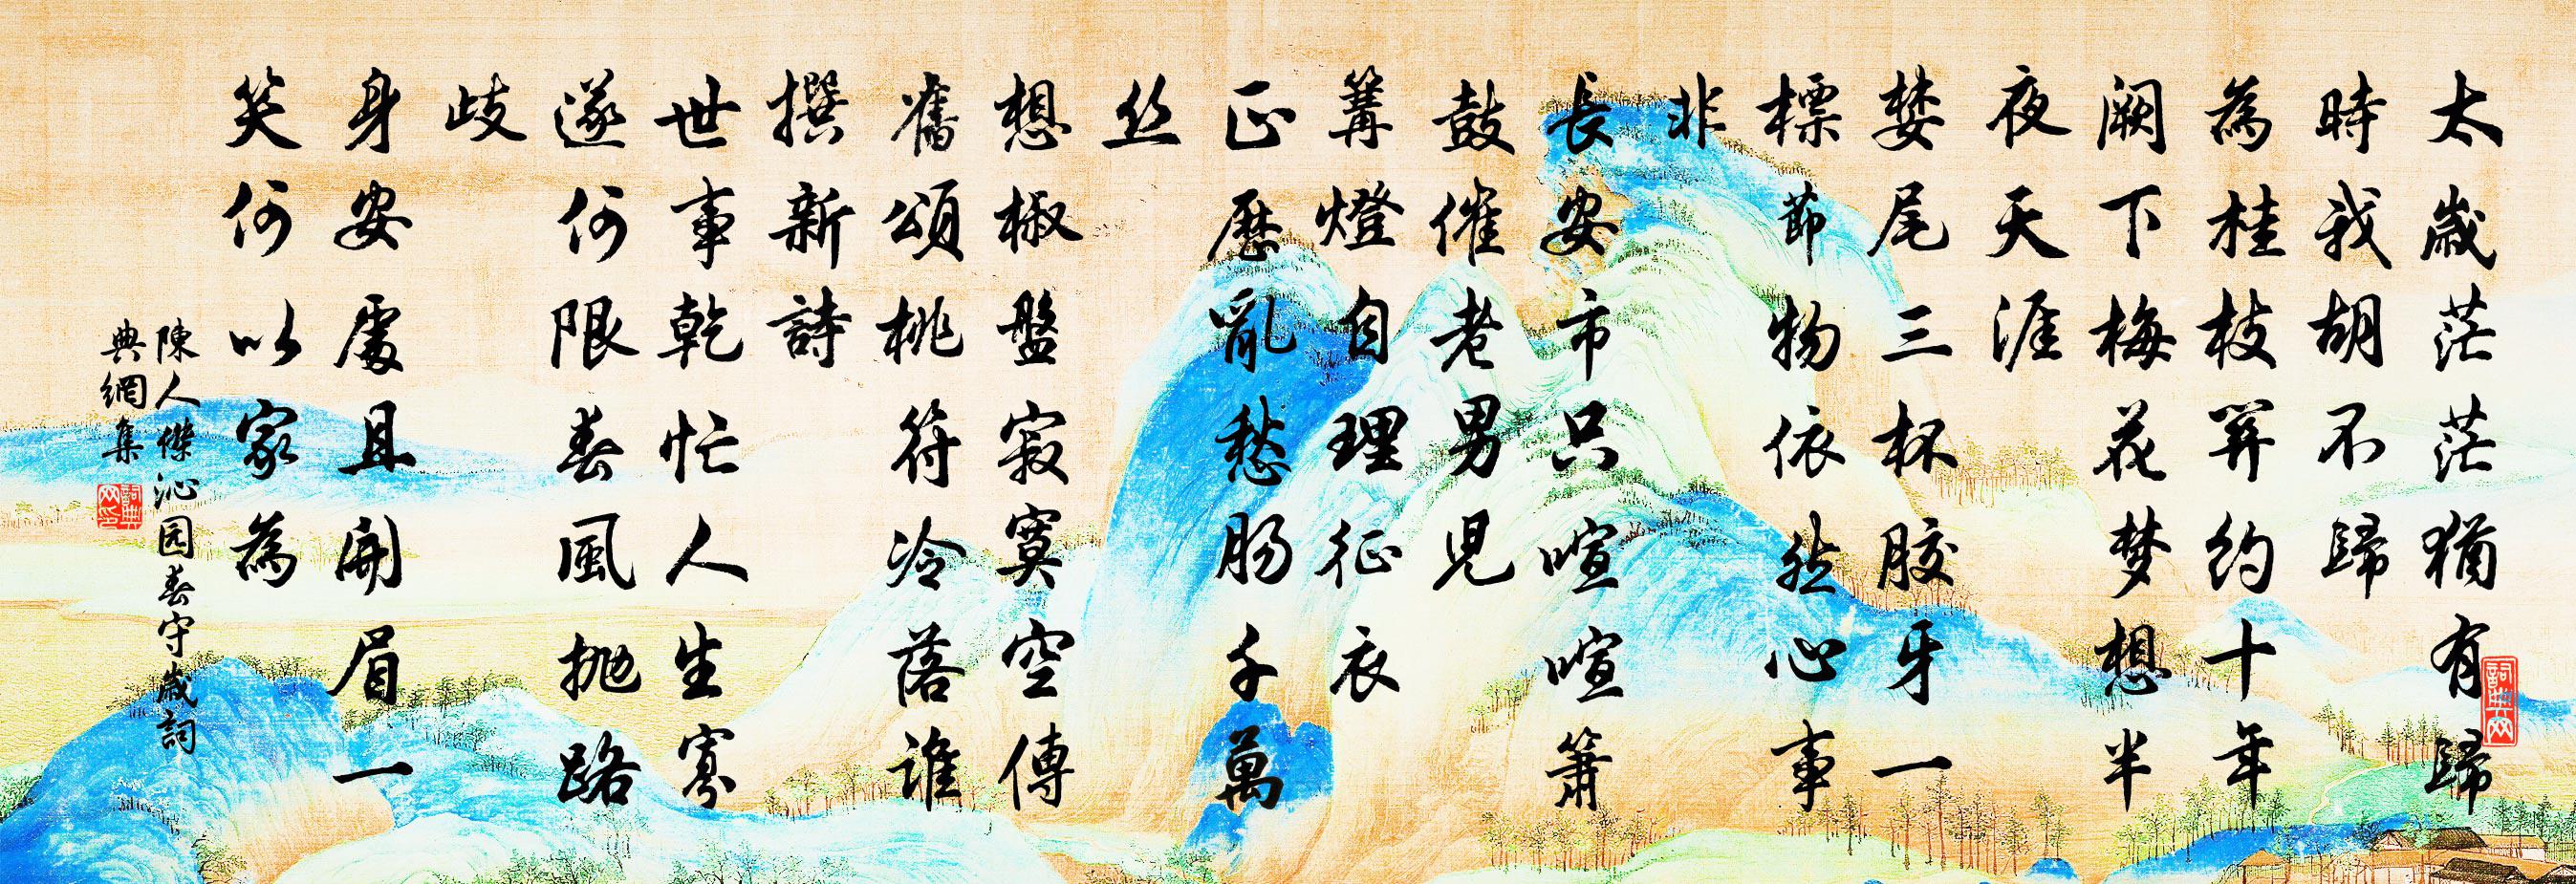 太歲茫茫猶有歸
時我胡不歸
為桂枝關約十年
闕下梅花夢想半
夜天涯
婪尾三杯膠牙一
標節物依然心事
非
長安市只喧喧簫
鼓催老男兒
篝燈自理征衣
正歷亂愁腸千萬
丝
想椒盤寂寞空傳
舊頌桃符冷落誰
撰新詩
世事乾忙人生寡
遂何限春風拋路
歧
身安處且開眉一
笑何以家為
陳人傑沁园春守歲詞
典網集
詞典网
詞典网印